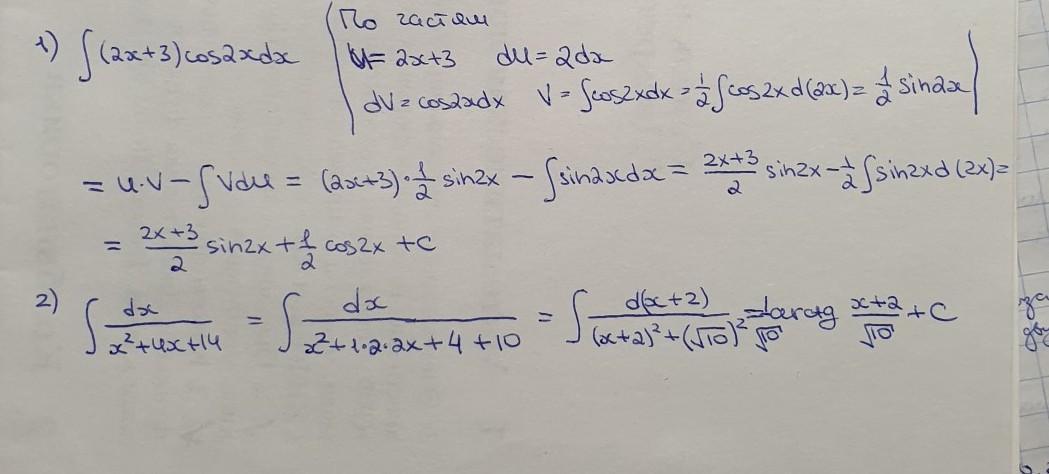 По частям
1) ∫(2x+3)cos2xdx
U = 2x+3 du = 2dx
dV = cos2xdx V = ∫cos2xdx = 1/2 ∫cos2x d(2x) = 1/2 sin2x
= u·v − ∫Vdu = (2x+3)·1/2 sin2x − ∫sin2xdx = (2x+3)/2 sin2x − 1/2 ∫sin2xd(2x) =
= (2x+3)/2 sin2x + 1/2 cos2x + C
2) ∫ dx/(x²+4x+14) = ∫ dx/(x²+1·2·2x+4+10) = ∫ d(x+2)/((x+2)²+(√10)²) = 1/√10 arctg (x+2)/√10 + C